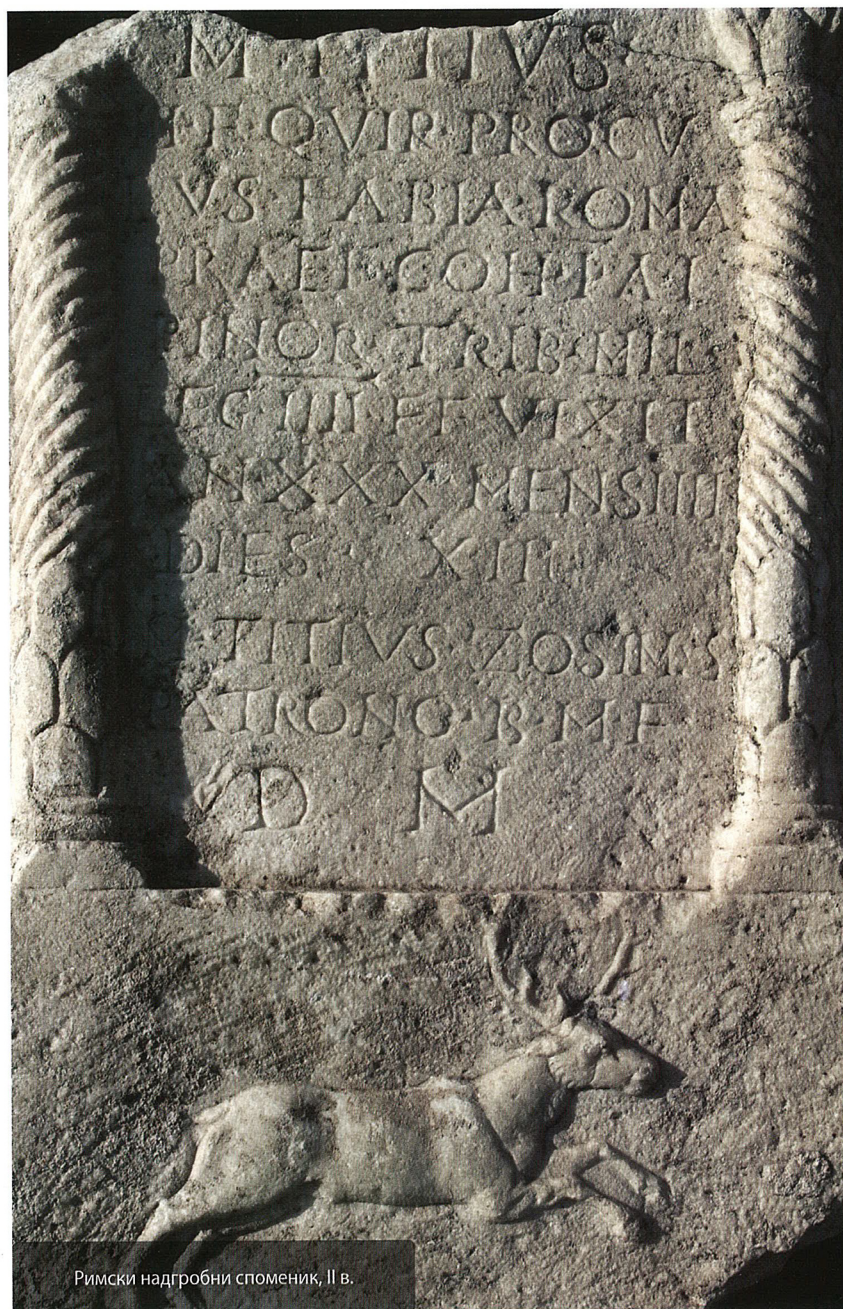 M TITIVS
F QVIR PROCV
VS FABIA ROMA
PRAEF COH PAI
PINOR TRIB MIL
LEG IIII FF VIXIT
AN XXX MENS IIII
DIES XIII
TITIVS ZOSIM S
PATRONO B M F
D M
Римски надгробни споменик, II в.